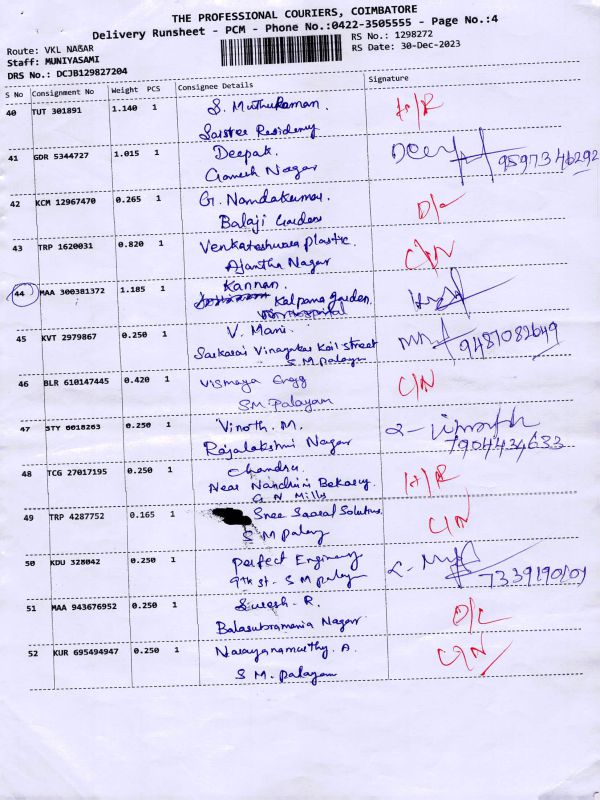 THE PROFESSIONAL COURIERS, COIMBATORE
Delivery Runsheet - PCM - Phone No.:0422-3505555 - Page No.:4
Route: VKL NAGAR
RS No.: 1298272
Staff: MUNIYASAMI
RS Date: 30-Dec-2023
DRS No.: DCJB129827204
S No Consignment No Weight PCS Consignee Details Signature
40 TUT 301891 1.140 1 S. Muthuraman. H/R
Saistree Residency
41 GDR 5344727 1.015 1 Deepak. Deep 9597346292
Ganesh Nagar
42 KCM 12967470 0.265 1 G. Nandakumar. D/C
Balaji Garden
43 TRP 1620031 0.820 1 Venkateshwara plastic. C/N
Ajantha Nagar
44 MAA 300381372 1.185 1 Kannan.
Kalpana garden.
45 KVT 2979867 0.250 1 V. Mani. 9487082649
Sarkarai Vinayakar Koil street
S.M palayam
46 BLR 610147445 0.420 1 Vismaya Engg C/N
SM Palayam
47 STY 6018263 0.250 1 Vinoth. M.
Rajalakshmi Nagar 7904434633
48 TCG 27017195 0.250 1 Chandru. H/R
Near Nandhini Bekary
G. N. Mills
49 TRP 4287752 0.165 1 Sree Saaral Solutions. C/N
S M palay
50 KDU 328042 0.250 1 Perfect Engineering
9th st - S M palay 7339190101
51 MAA 943676952 0.250 1 Suresh. R. D/C
Balasubramania Nagar
52 KUR 695494947 0.250 1 Narayanamurthy. A. C/N
S M. palayam